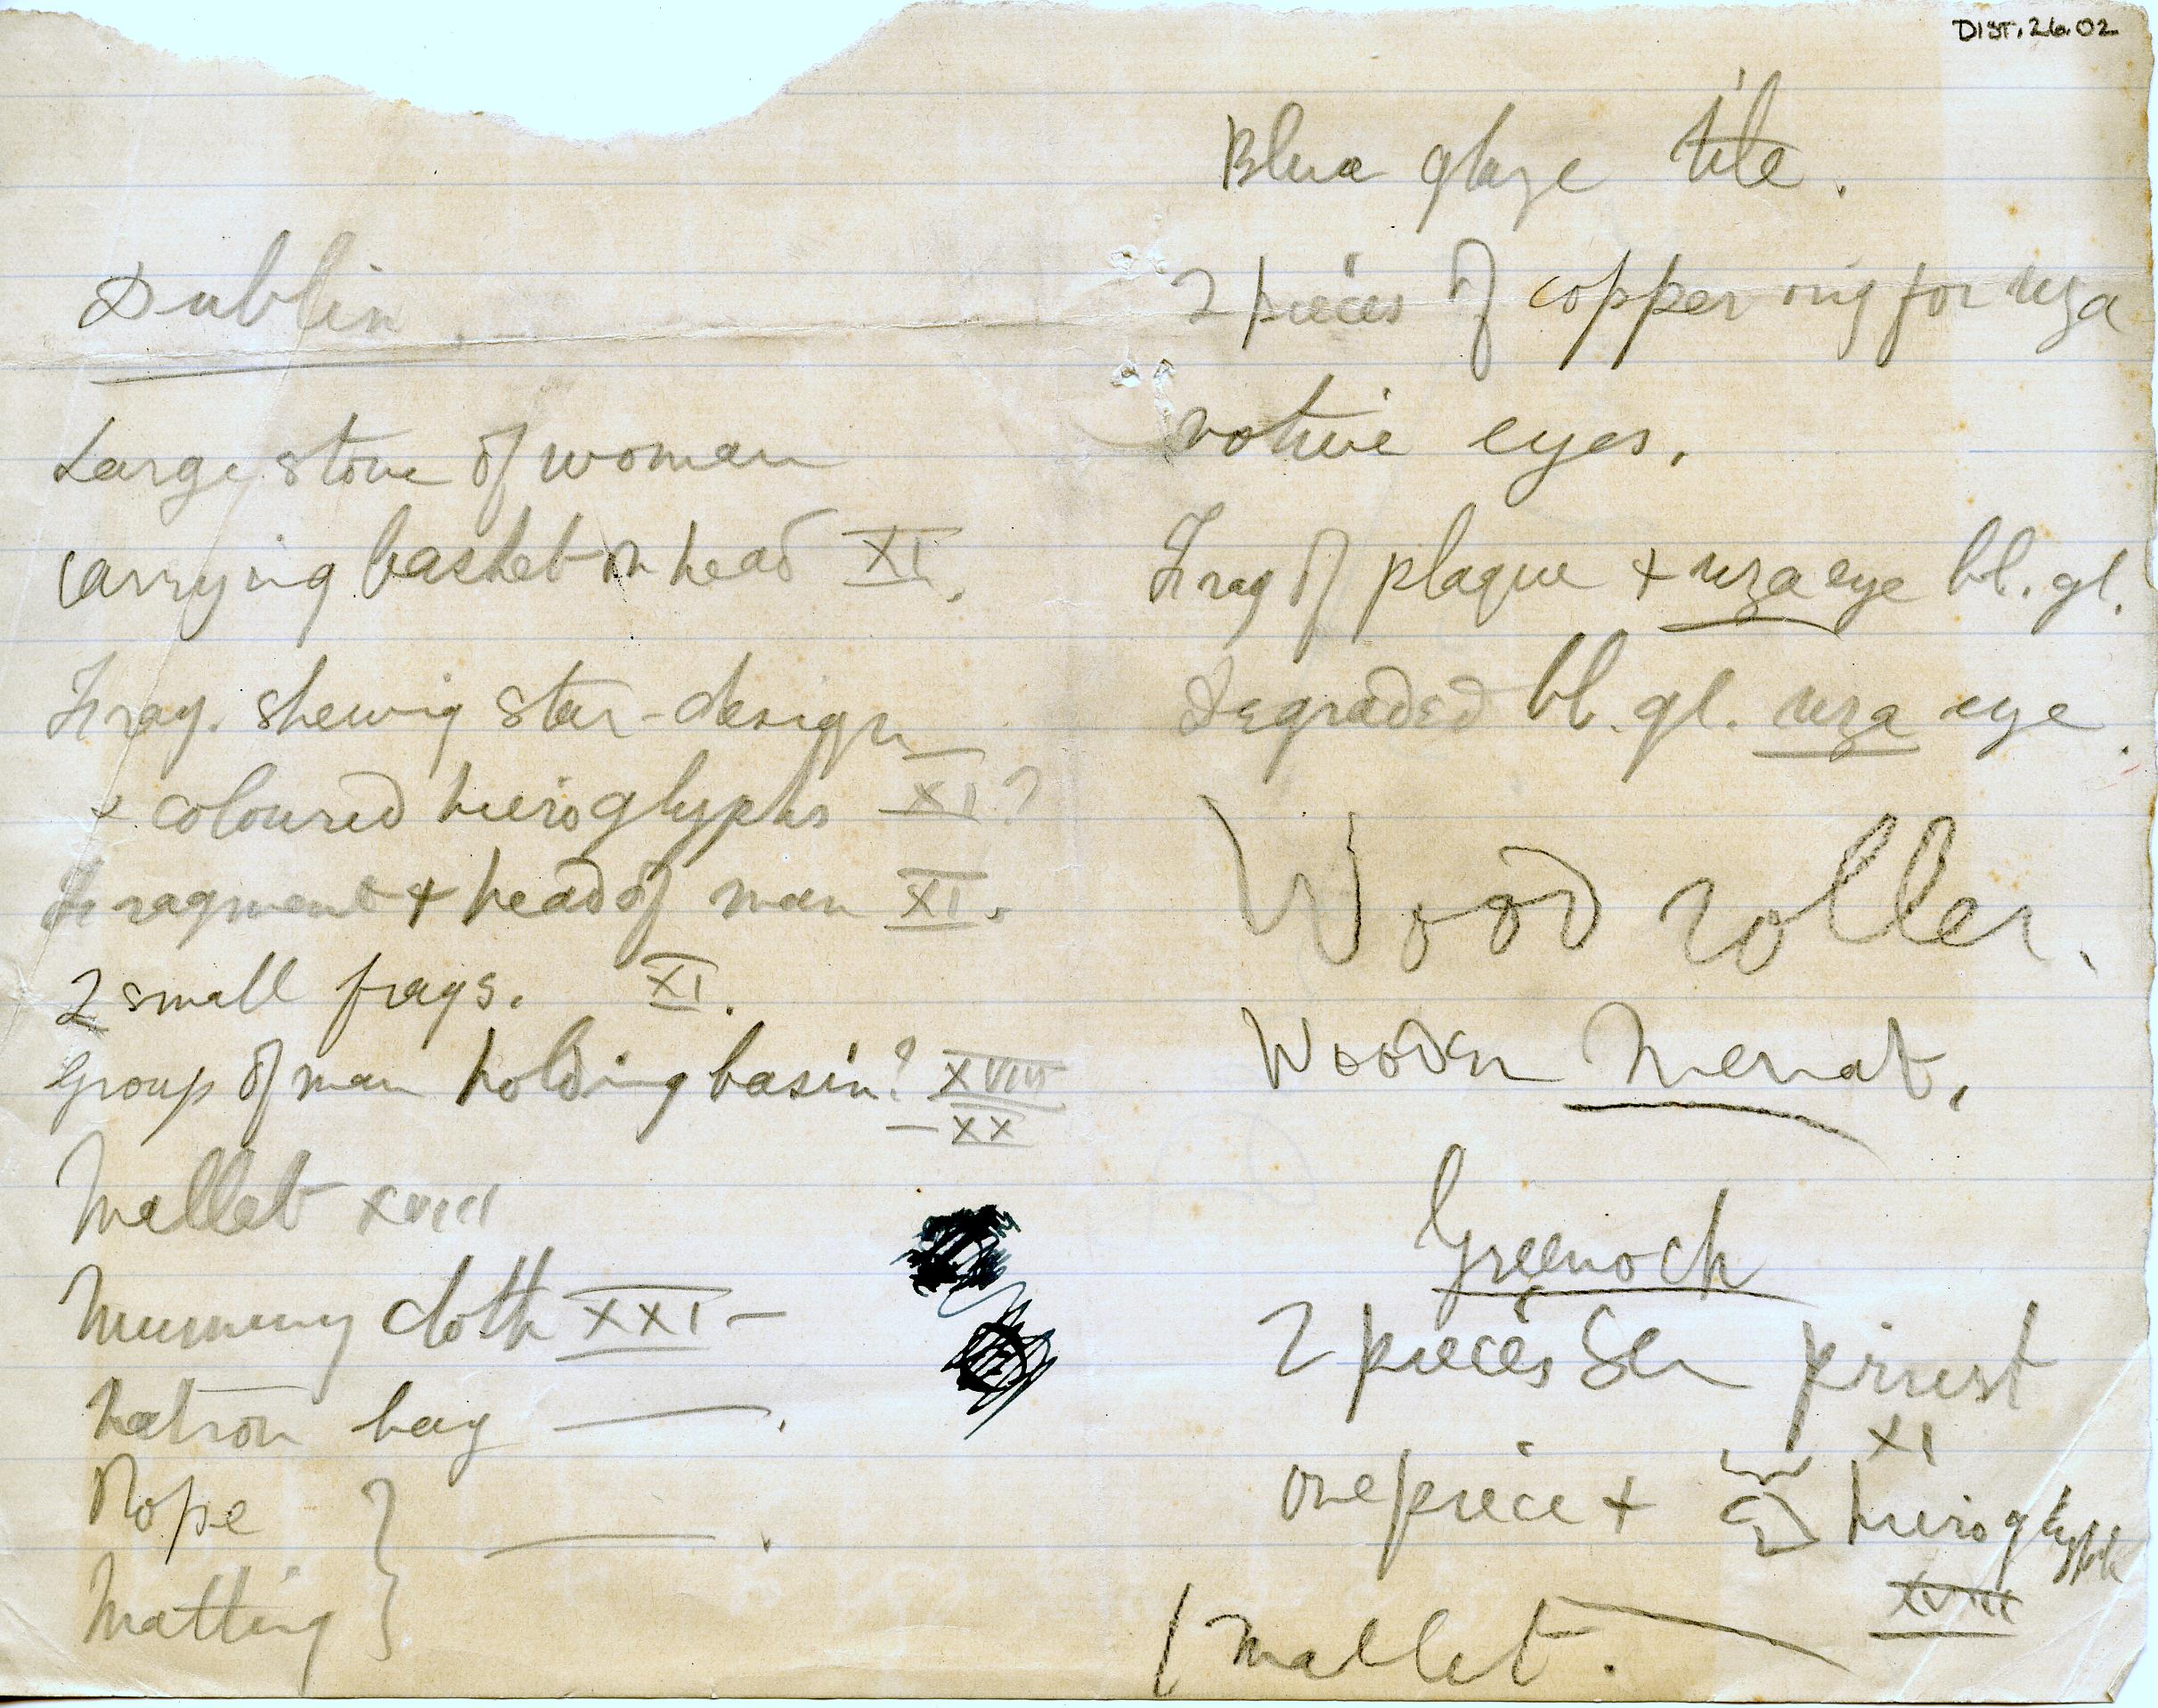 DIST.26.02
Dublin.
Large stone of woman
carrying basket on head XI.
Frag. shewing star-design
+ coloured hieroglyphs XI?
Fragment + head of man XI.
2 small frags. XI.
Group of man holding basin? XVIII
— XX
Mallet XVIII
Mummy cloth XXI —
Natron bag ——.
Rope
Matting } ——.
Blue glaze tile.
2 pieces of copper ring for uza
votive eyes.
Frag of plaque + uza eye bl. gl.
Degraded bl. gl. uza eye.
Wood roller.
Wooden Menat.
Greenock
2 pieces Sen priest
XI
one piece + hieroglyph
XVIII
1 Mallet.